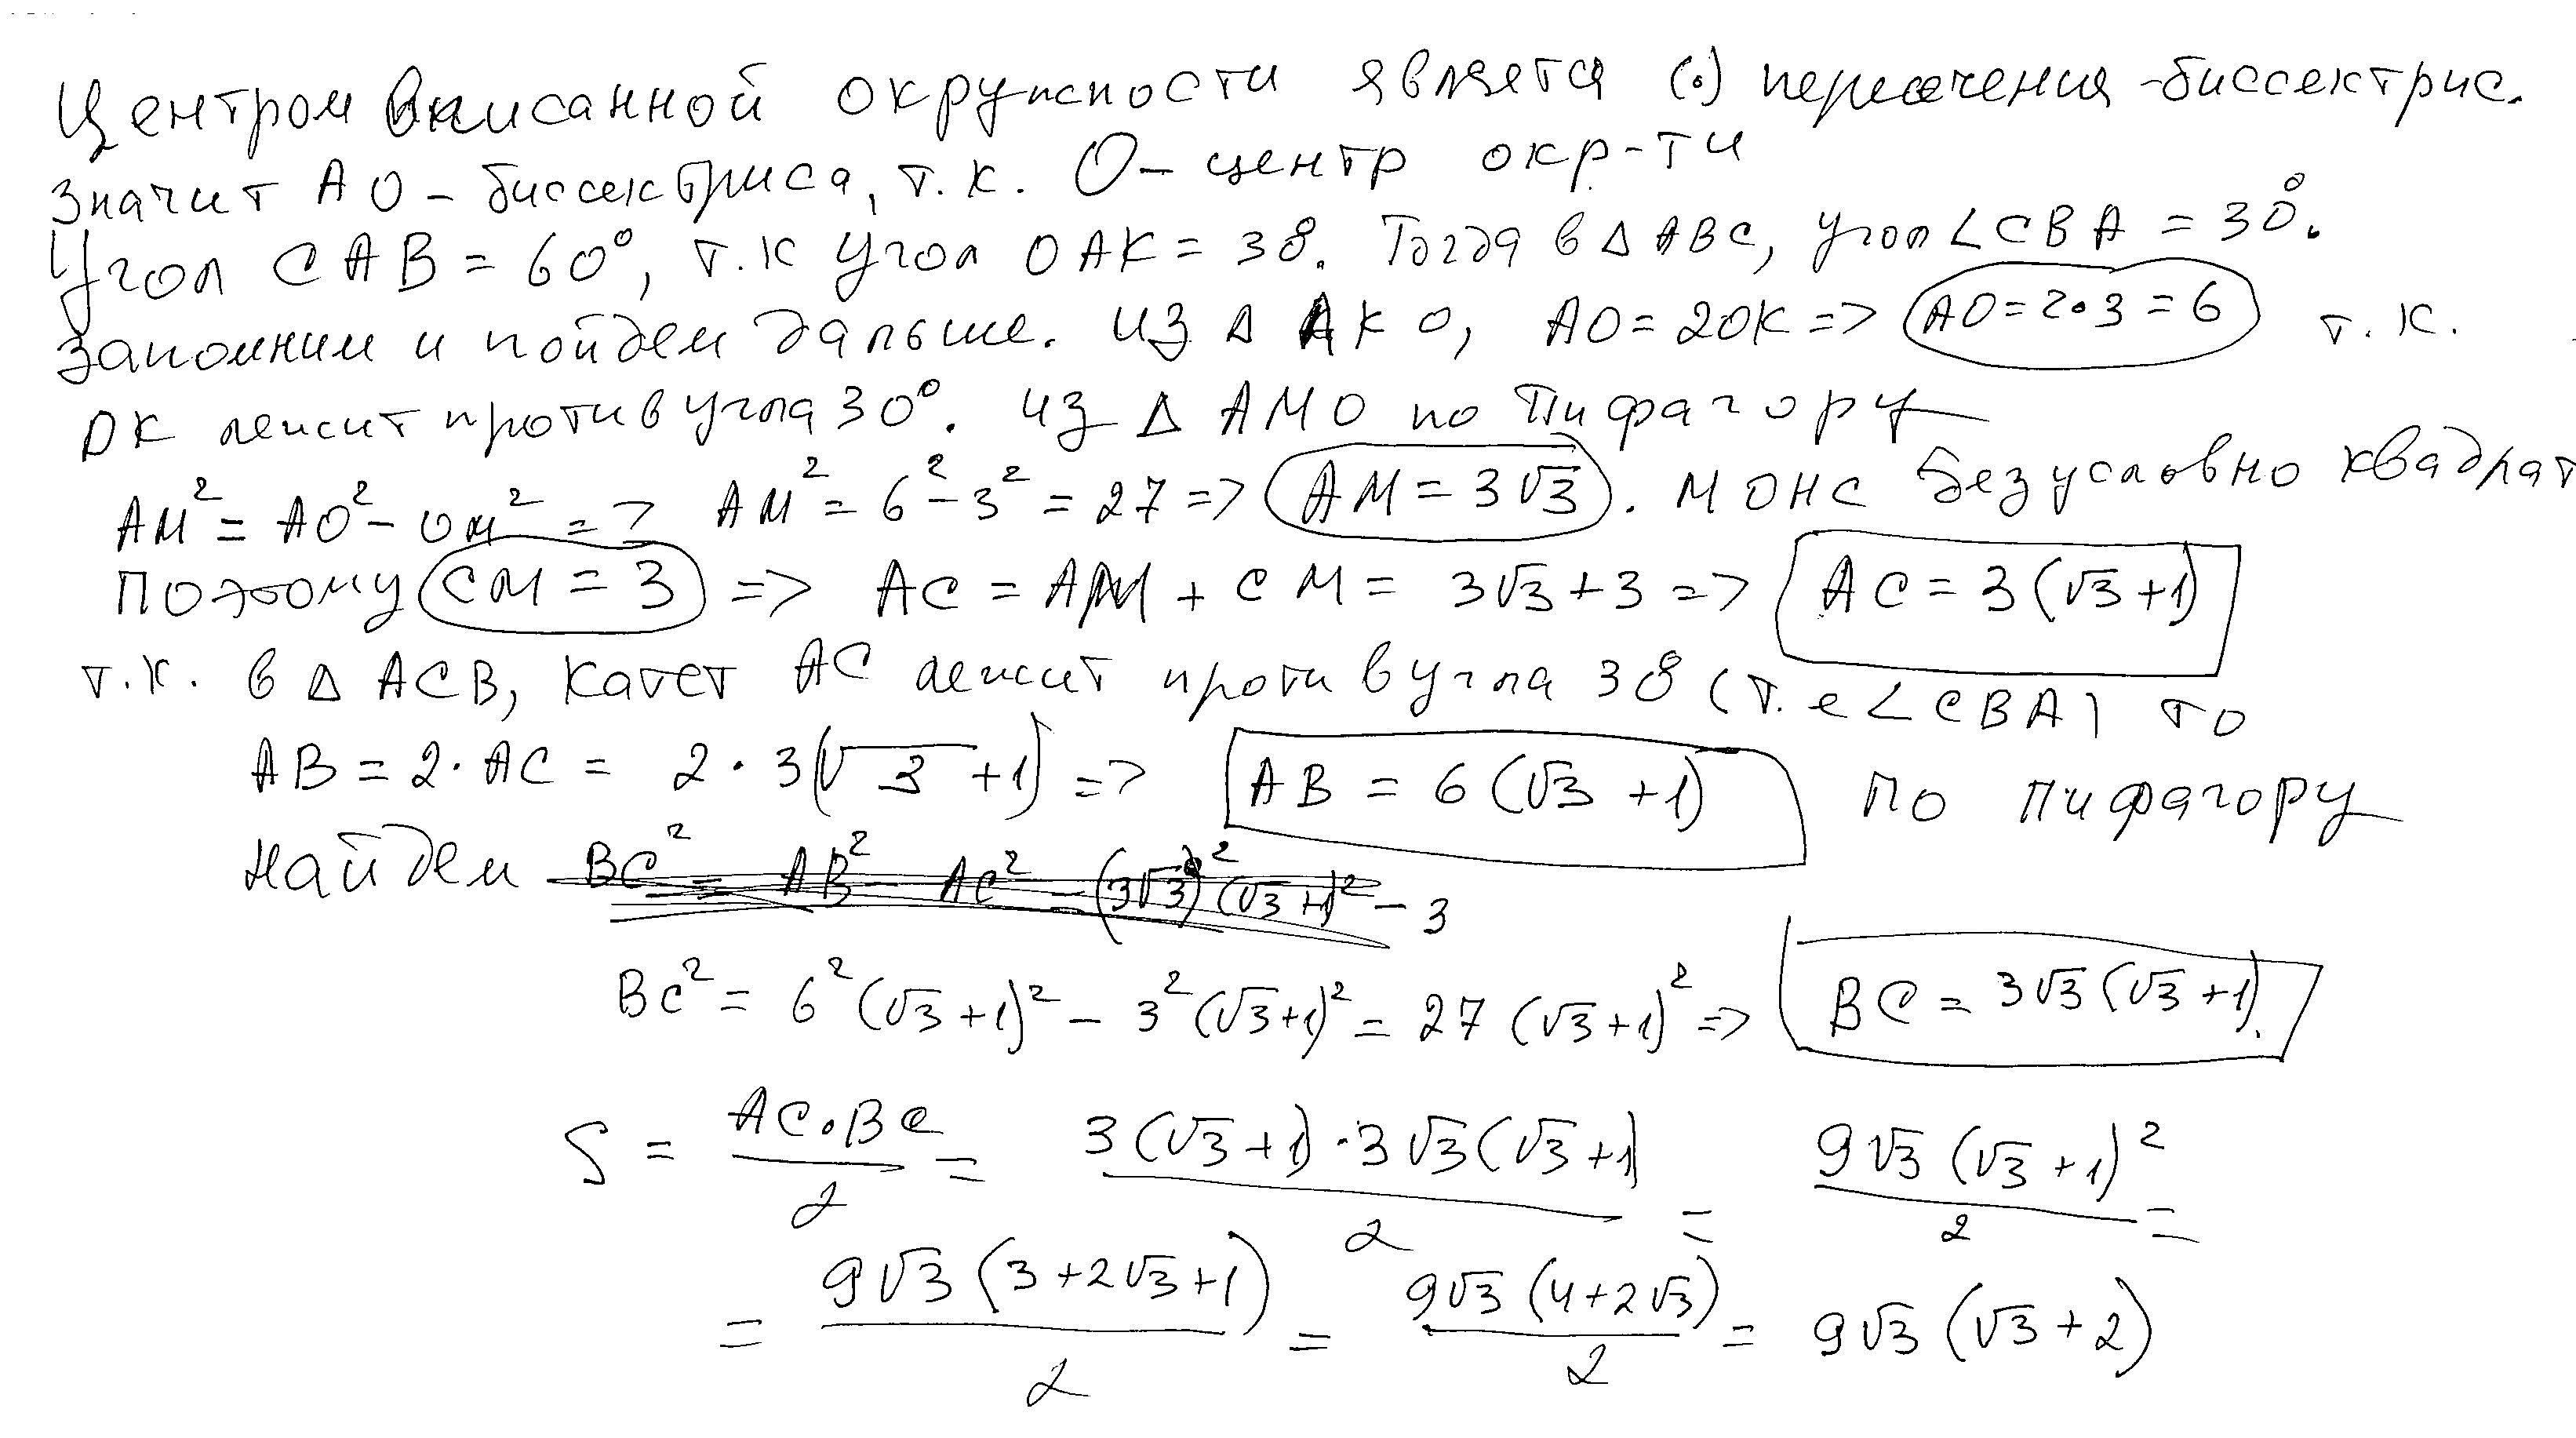 Центром вписанной окружности является (•) пересечения биссектрис.
Значит АО – биссектриса, т.к. О – центр окр-ти
Угол САВ = 60°, т.к угол ОАК = 30°. Тогда в Δ АВС, угол ∠СВА = 30°.
Запомним и пойдем дальше. Из Δ АКО, АО = 2ОК => АО = 2•3 = 6 т.к.
ОК лежит против угла 30°. Из Δ АМО по Пифагору
АМ² = АО² – ОМ² => АМ² = 6² – 3² = 27 => АМ = 3√3. МОНС безусловно квадрат
Поэтому СМ = 3 => АС = АМ + СМ = 3√3 + 3 => АС = 3(√3+1)
т.к. в Δ АСВ, катет АС лежит против угла 30° (т.е ∠СВА) то
АВ = 2·АС = 2·3(√3+1) => АВ = 6(√3+1) по Пифагору
найдем ВС² = АВ² – АС² = (3√3)²(√3+1)² – 3
ВС² = 6²(√3+1)² – 3²(√3+1)² = 27(√3+1)² => ВС = 3√3(√3+1).
S = АС•ВС/2 = 3(√3+1)·3√3(√3+1)/2 = 9√3(√3+1)²/2 =
= 9√3(3+2√3+1)/2 = 9√3(4+2√3)/2 = 9√3(√3+2)